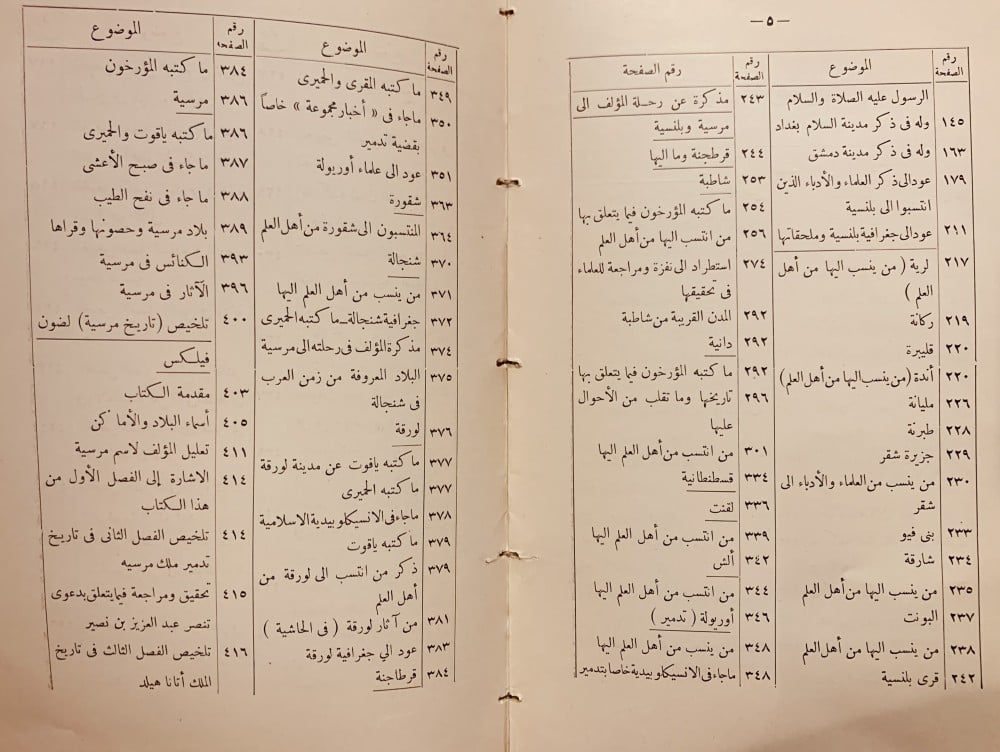 — ٥ —
رقم الصفحة
الموضوع
الرسول عليه الصلاة والسلام
١٤٥ وله فى ذكر مدينة السلام بغداد
١٦٣ وله فى ذكر مدينة دمشق
١٧٩ عود الى ذكر العلماء والأدباء الذين
انتسبوا الى بلنسية
٢١١ عود الى جغرافية بلنسية وملحقاتها
٢١٧ لرية ( من ينسب اليها من أهل
العلم )
٢١٩ ركانة
٢٢٠ قليبرة
٢٢٠ أندة (من ينسب اليها من أهل العلم)
٢٢٦ مليانة
٢٢٨ طبرنة
٢٢٩ جزيرة شقر
٢٣٠ من ينسب من العلماء والأدباء الى
شقر
٢٣٣ بنى فيو
٢٣٤ شارقة
٢٣٥ من ينسب اليها من أهل العلم
٢٣٧ البونت
٢٣٨ من ينسب اليها من أهل العلم
٢٤٢ قرى بلنسية
رقم الصفحة
رقم الصفحة
٢٤٣ مذكرة عن رحلة المؤلف الى
مرسية وبلنسية
٢٤٤ قرطجنة وما اليها
٢٥٣ شاطبة
٢٥٤ ما كتبه المؤرخون فيما يتعلق بها
٢٥٦ من انتسب اليها من أهل العلم
٢٧٤ استطراد الى نفزة ومراجعة للعلماء
فى تحقيقها
٢٩٢ المدن القريبة من شاطبة
٢٩٢ دانية
٢٩٢ ما كتبه المؤرخون فيما يتعلق بها
٢٩٦ تاريخها وما تقلب من الأحوال
عليها
٣٠١ من انتسب من أهل العلم اليها
٣٣٤ قسطنطانية
٣٣٦ لقنت
٣٣٩ من انتسب من أهل العلم اليها
٣٤٢ ألش
٣٤٤ من انتسب من أهل العلم اليها
٣٤٦ أوريولة ( تدمير )
٣٤٨ من ينسب من أهل العلم اليها
٣٤٨ ماجاء فى الانسيكلوبيدية خاصا بتدمير
رقم الصفحة
الموضوع
٣٤٩ ما كتبه المقرى والحميرى
٣٥٠ ماجاء فى « أخبار مجموعة » خاصاً
بقضية تدمير
٣٥١ عود الى علماء أوريولة
٣٦٣ شقورة
٣٦٤ المنتسبون الى شقورة من أهل العلم
٣٧٠ شنجالة
٣٧١ من ينسب من أهل العلم اليها
٣٧٢ جغرافية شنجالة ـ ما كتبه الحميرى
٣٧٤ مذكرة المؤلف فى رحلته الى مرسية
٣٧٥ البلاد المعروفة من زمن العرب
فى شنجالة
٣٧٦ لورقة
٣٧٧ ما كتبه ياقوت عن مدينة لورقة
٣٧٧ ما كتبه الحميرى
٣٧٨ ماجاء فى الانسيكلوبيدية الاسلامية
٣٧٩ ما كتبه ياقوت
٣٧٩ ذكر من انتسب الى لورقة من
أهل العلم
٣٨١ من آثار لورقة ( فى الحاشية )
٣٨٣ عود الي جغرافية لورقة
٣٨٤ قرطاجنة
رقم الصفحة
الموضوع
٣٨٤ ما كتبه المؤرخون
٣٨٦ مرسية
٣٨٦ ما كتبه ياقوت والحميرى
٣٨٧ ما جاء فى صبح الأعشى
٣٨٨ ما جاء فى نفح الطيب
٣٨٩ بلاد مرسية وحصونها وقراها
٣٩٣ الكنائس فى مرسية
٣٩٦ الآثار فى مرسية
٤٠٠ تلخيص (تاريخ مرسية) لضون
فيلكس
٤٠٣ مقدمة الكتاب
٤٠٥ أسماء البلاد والأماكن
٤١١ تعليل المؤلف لاسم مرسية
٤١٤ الاشارة إلى الفصل الأول من
هذا الكتاب
٤١٤ تلخيص الفصل الثانى فى تاريخ
تدمير ملك مرسيه
٤١٥ تحقيق ومراجعة فيما يتعلق بدعوى
تنصر عبد العزيز بن نصير
٤١٦ تلخيص الفصل الثالث فى تاريخ
الملك أتانا هيلد